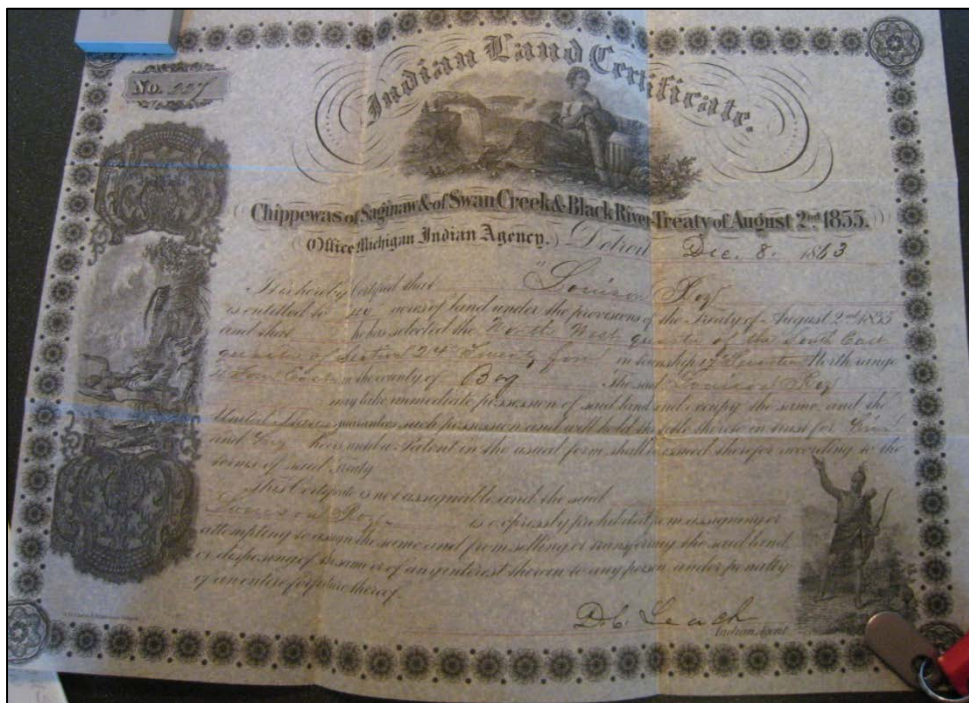 No. 227
Indian Land Certificate.
Chippewas of Saginaw & of Swan Creek & Black River-Treaty of August 2nd 1855.
Office Michigan Indian Agency. Detroit Dec. 8. 1863
It is hereby Certified that Louison Roy
is entitled to acres of land under the provisions of the Treaty of August 2nd 1855
and that he has selected the North West quarter of the South East
quarter of Section 24 Twenty four in township 17 North range
4 Four East in the county of Bay The said Louison Roy
may take immediate possession of said land and occupy the same, and the
United States guarantees such possession and will hold the title thereto in trust for him
and heirs until a Patent in the usual form, shall be issued therefor according to the
terms of said Treaty
This Certificate is not assignable and the said
Louison Roy is expressly prohibited from assigning or
attempting to assign the same and from selling or transferring the said land
or disposing of the same or of any interest therein to any person under penalty
of an entire forfeiture thereof.
D. C. Leach
Indian Agent